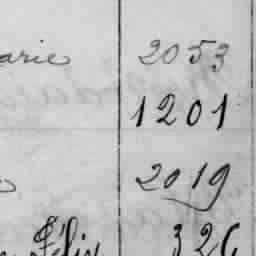 arie 2053
1201
2019
Félix 326